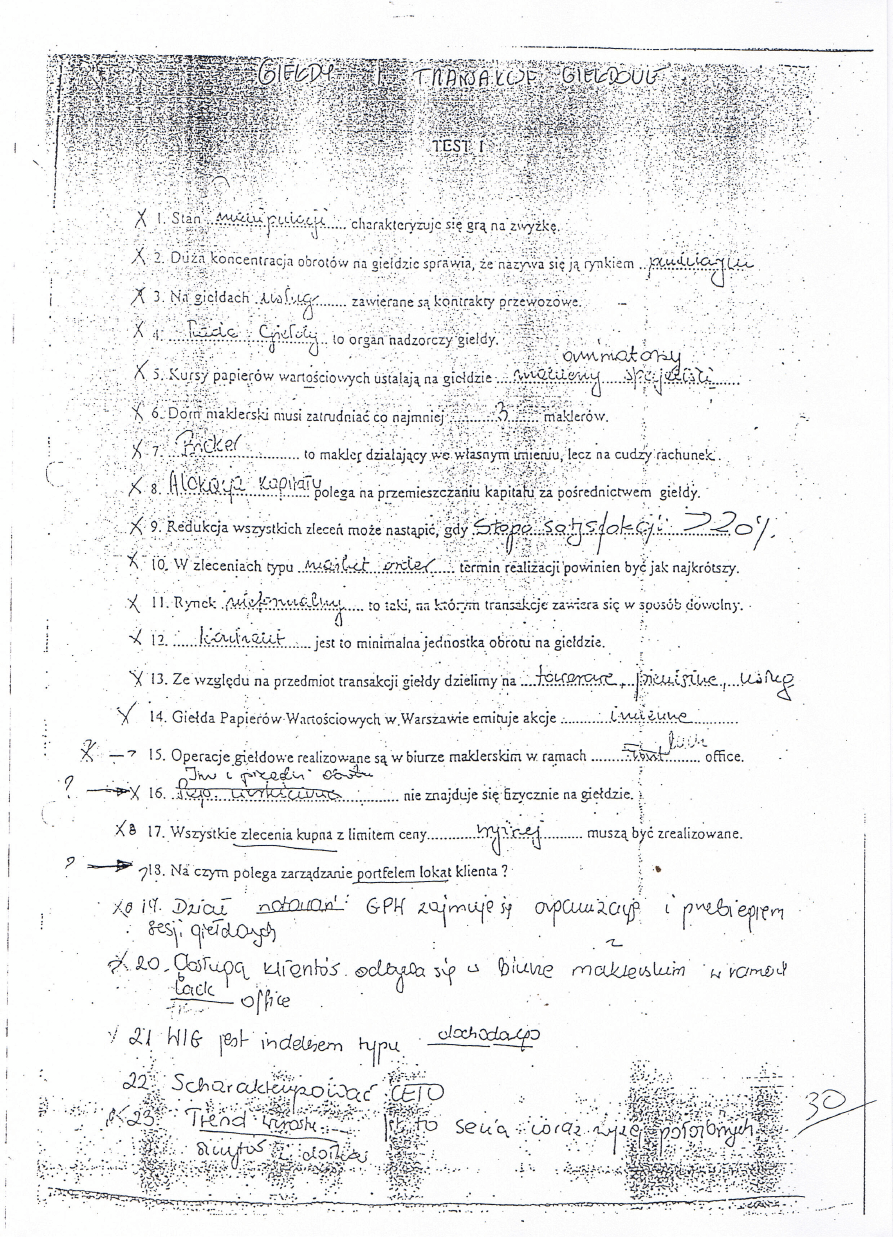 GIEŁDY I TRANSAKCJE GIEŁDOWE
TEST I
X 1. Stan ... charakteryzuje się grą na zwyżkę.
X 2. Duża koncentracja obrotów na giełdzie sprawia, że nazywa się ją rynkiem ..
X 3. Na giełdach usług zawierane są kontrakty przewozowe.
X 4. Rada Giełdy to organ nadzorczy giełdy.
animatorzy
X 5. Kursy papierów wartościowych ustalają na giełdzie specjaliści
X 6. Dom maklerski musi zatrudniać co najmniej 3 maklerów.
X 7. Broker to makler działający we własnym imieniu, lecz na cudzy rachunek.
X 8. Alokacja kapitału polega na przemieszczaniu kapitału za pośrednictwem giełdy.
X 9. Redukcja wszystkich zleceń może nastąpić, gdy stopa satysfakcji >20%.
X 10. W zleceniach typu market order termin realizacji powinien być jak najkrótszy.
X 11. Rynek nieformalny to taki, na którym transakcje zawiera się w sposób dowolny.
X 12. kontrakt jest to minimalna jednostka obrotu na giełdzie.
X 13. Ze względu na przedmiot transakcji giełdy dzielimy na towarowe, pieniężne, usług
X 14. Giełda Papierów Wartościowych w Warszawie emituje akcje imienne
X 15. Operacje giełdowe realizowane są w biurze maklerskim w ramach front office.
? X 16. nie znajduje się fizycznie na giełdzie.
X 17. Wszystkie zlecenia kupna z limitem ceny wyższej muszą być zrealizowane.
? 18. Na czym polega zarządzanie portfelem lokat klienta ?
19. Dział notowań GPW zajmuje się organizacją i przebiegiem
sesji giełdowych
X 20. Obsługa klientów odbywa się w biurze maklerskim w ramach
back office
21 WIG jest indeksem typu dochodowego
22. Scharakteryzować CETO
X 23. Trend wzrostu jest to seria coraz wyżej położonych
szczytów i dołków
30